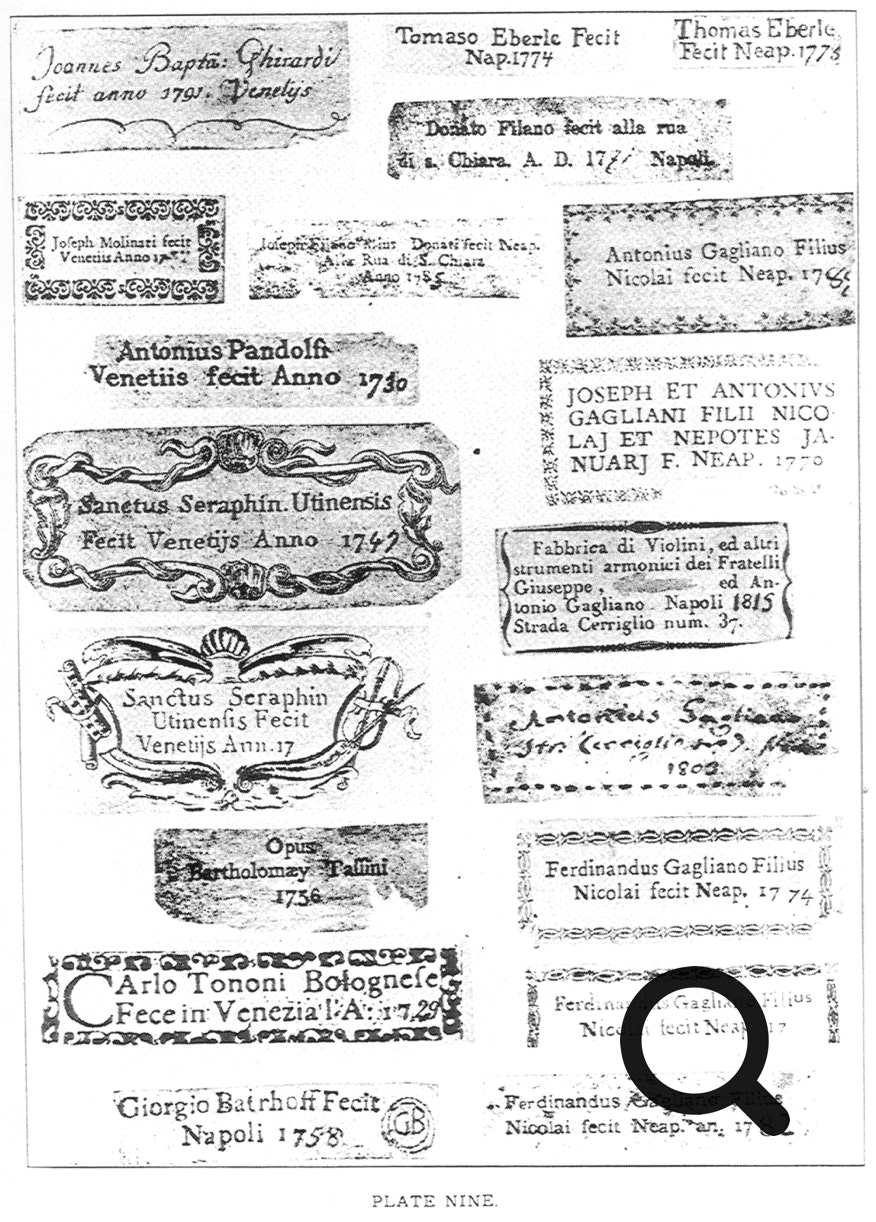 Joannes Baptã: Ghirardi
fecit anno 1791. Venetijs
Tomaso Eberle Fecit
Nap.1774
Thomas Eberle
Fecit Neap.1773
Donato Filano fecit alla rua
di s. Chiara. A. D. 17 Napoli.
Joseph Molinari fecit
Venetiis Anno
Joseph Filano Filius Donati fecit Neap.
Alla Rua di S. Chiara
Anno 1785
Antonius Gagliano Filius
Nicolai fecit Neap. 17
Antonius Pandolfi
Venetiis fecit Anno 1730
JOSEPH ET ANTONIVS
GAGLIANI FILII NICO
LAJ ET NEPOTES JA-
NUARJ F. NEAP. 1770
Sanctus Seraphin. Utinensis
Fecit Venetijs Anno 1747
Fabbrica di Violini, ed altri
strumenti armonici dei Fratelli
Giuseppe, ed An-
tonio Gagliano. Napoli 1815
Strada Cerriglio num. 37.
Sanctus Seraphin
Utinensis Fecit
Venetijs Ann.17
Antonius Gagliano
Cerriglio
1800
Opus
Bartholomæy Tassini
1756
Ferdinandus Gagliano Filius
Nicolai fecit Neap. 17 74
CArlo Tononi Bolognese
Fece in Venezia l'A: 1729
Ferdinandus Gagliano Filius
Nicolai fecit Neap. 17
Giorgio Bairhoff Fecit
Napoli 1758
GB
Ferdinandus Gagliano Filius
Nicolai fecit Neap. an. 17
PLATE NINE.